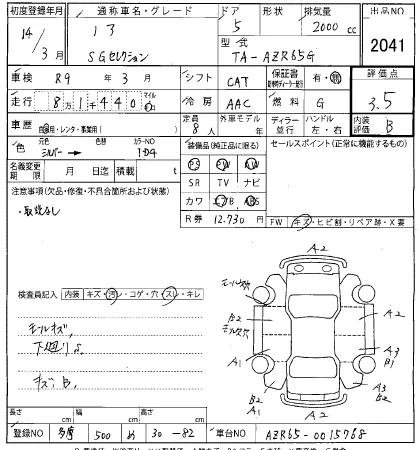 初度登録年月 通称車名・グレード ドア 形状 排気量 出品NO
14/3月 5 2000 cc
SGセレクション 型式 2041
TA-AZR65G
車検 R9年3月 シフト CAT 保証書 有・無 評価点
走行 8万1千440 マイル キロ 冷房 AAC 燃料 G 3.5
車歴 自家用・レンタ・事業用( ) 定員 8人 外車モデル 年 ディーラー 並行 ハンドル 左・右 内装評価 B
色 シルバー → 色替 カラーNO 1D4 装備品(純正品に限る) セールスポイント(正常に機能するもの)
PS PW
名義変更期限 月 日 積載 t SR TV ナビ
注意事項(欠品・修復・不具合箇所および状態) カワ エアB ABS
・取説なし R券 12,730円
FW キズ・ヒビ割・リペア跡・X要
A2
検査員記入 内装 キズ・汚レ・コゲ・穴・スレ・キレ
A2
モールキズ B2
下廻りS A1 A3 B1
キズ、B、 B2 A1 A3 B2
A2
長さ cm 幅 cm 高さ cm
登録NO 多摩 500 め 30-82 車台NO AZR65-0015768